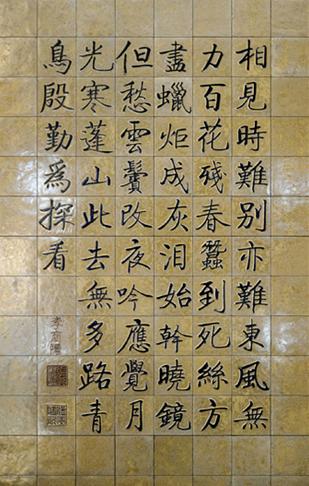 相見時難別亦難東風無
力百花殘春蠶到死絲方
盡蠟炬成灰泪始幹曉鏡
但愁雲鬢改夜吟應覺月
光寒蓬山此去無多路青
鳥殷勤爲探看
李商隱